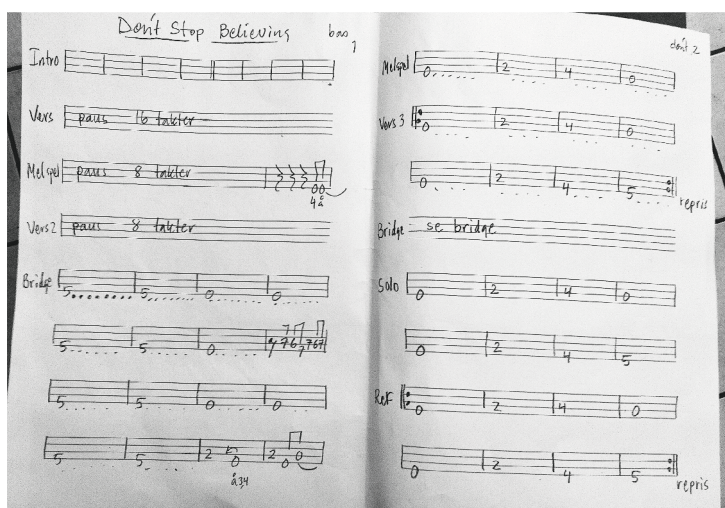 Don't Stop Believing bas 1
Intro
Vers paus 16 takter
Melspel paus 8 takter 0 0
4 å
Vers 2 paus 8 takter
Bridge 5 5 0 0
5 5 0 7 6 7 7 6 7
5 5 0 0
5 5 2 0 2 0 0
å 3,4
don't 2
Melspel 0 2 4 0
Vers 3 0 2 4 0
0 2 4 5 repris
Bridge se bridge
Solo 0 2 4 0
0 2 4 5
Ref 0 2 4 0
0 2 4 5 repris